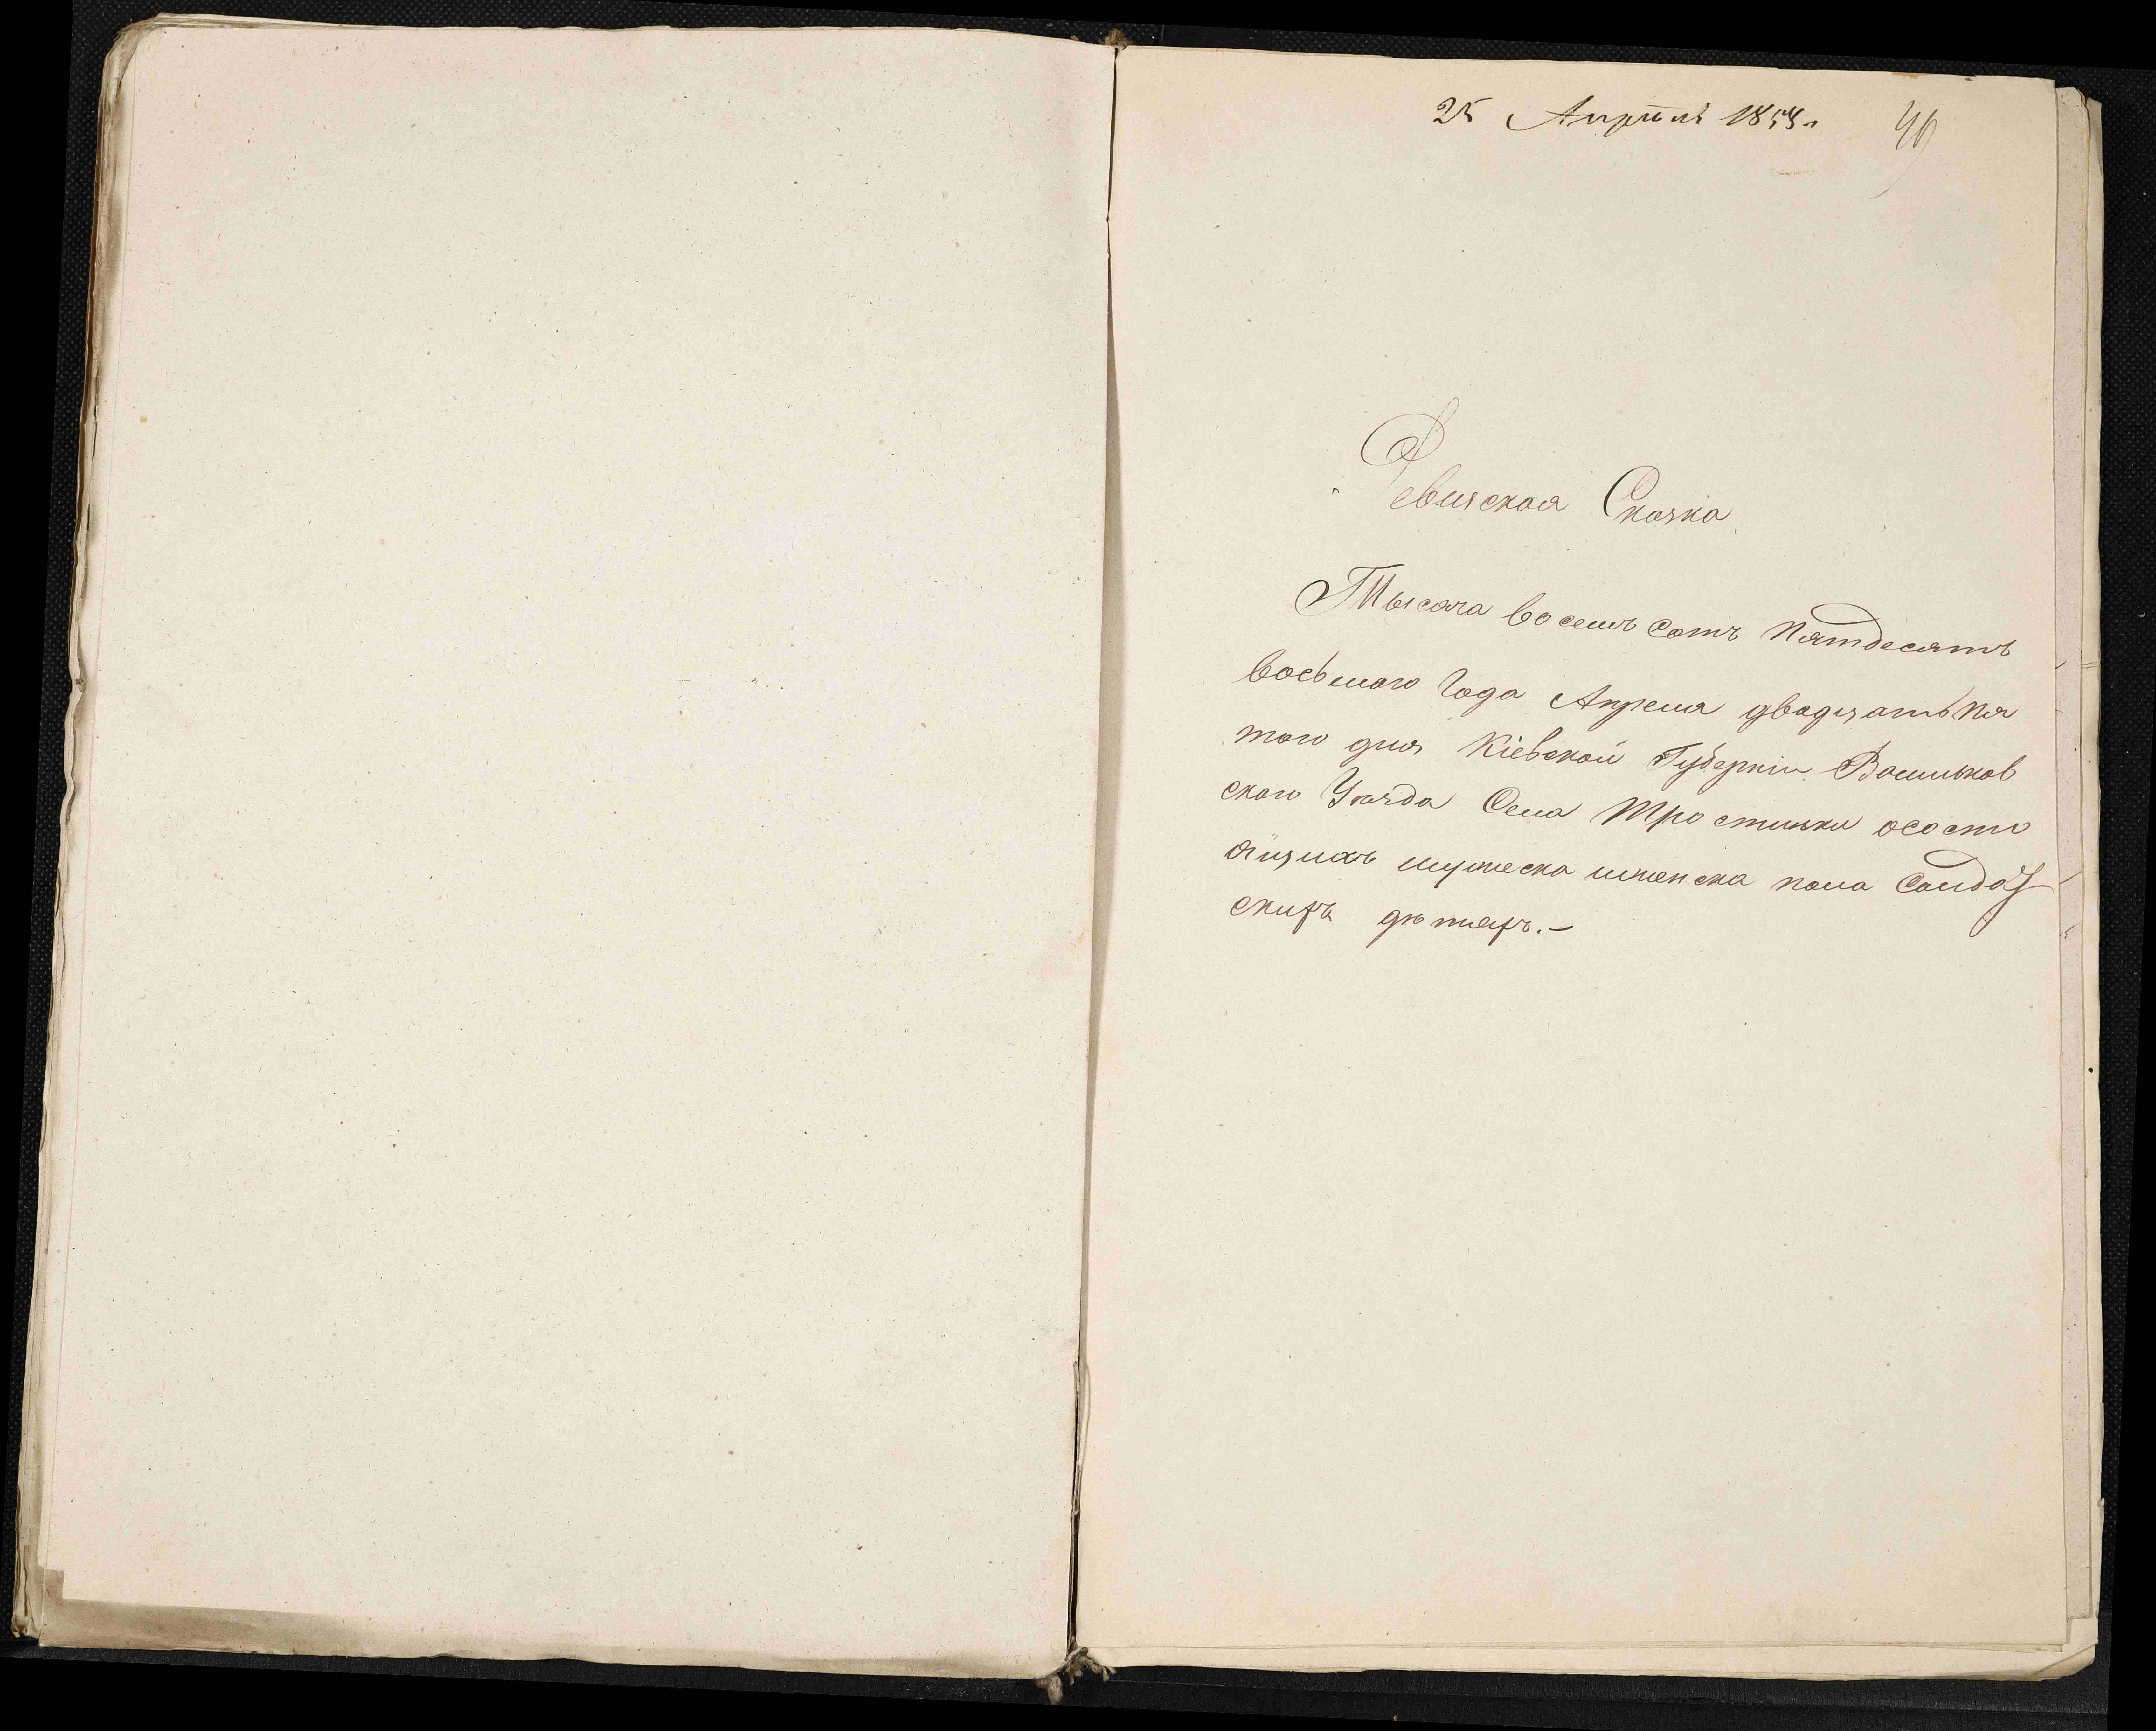 25 Апрѣля 1858 г.
Ревизская Сказка
Тысяча восемъ сотъ пятдесятъ
восьмого Года Апреля двадцать пя
того дня Кіевской Губерніи Васильков
ского Уѣзда Села Тростинки ососто
ящихъ мужеска иженска пола Солдат
скихъ дѣтяхъ.-